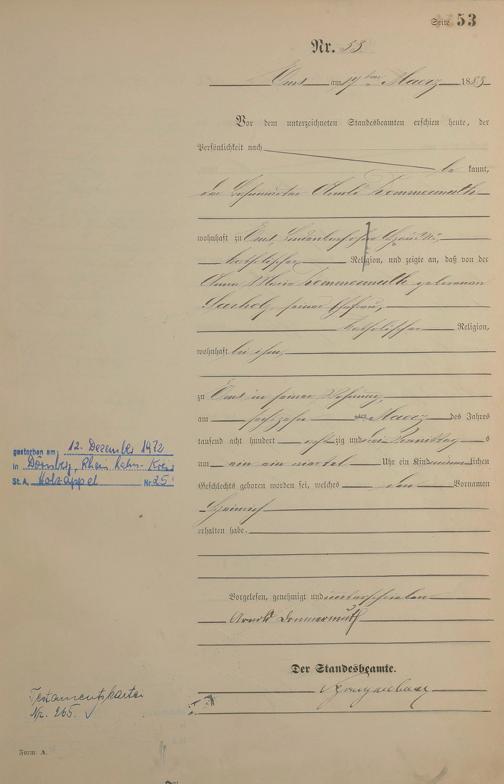 Seite 53
Nr. 53
Ems am 17ten Maerz 1883
Vor dem unterzeichneten Standesbeamten erschien heute, der
Persönlichkeit nach
be kannt,
der
wohnhaft zu Ems,
katholischer Religion, und zeigte an, daß von der
Anna Maria geborenen
seiner Ehefrau,
katholischer Religion,
wohnhaft bei ihm,
zu Ems in seiner Wohnung,
am sechszehnten Maerz des Jahres
tausend acht hundert achtzig und drei Vormittags
um ein ein viertel Uhr ein Kind männlichen
Geschlechts geboren worden sei, welches den Vornamen
Heinrich
erhalten habe.
Vorgelesen, genehmigt und unterschrieben
Der Standesbeamte.
gestorben am 12. Dezember 1972
in Dornberg, Rhein Lahn-Kreis
St. A. Holzappel Nr. 25
Testamentskartei
Nr. 265.
Form. A.